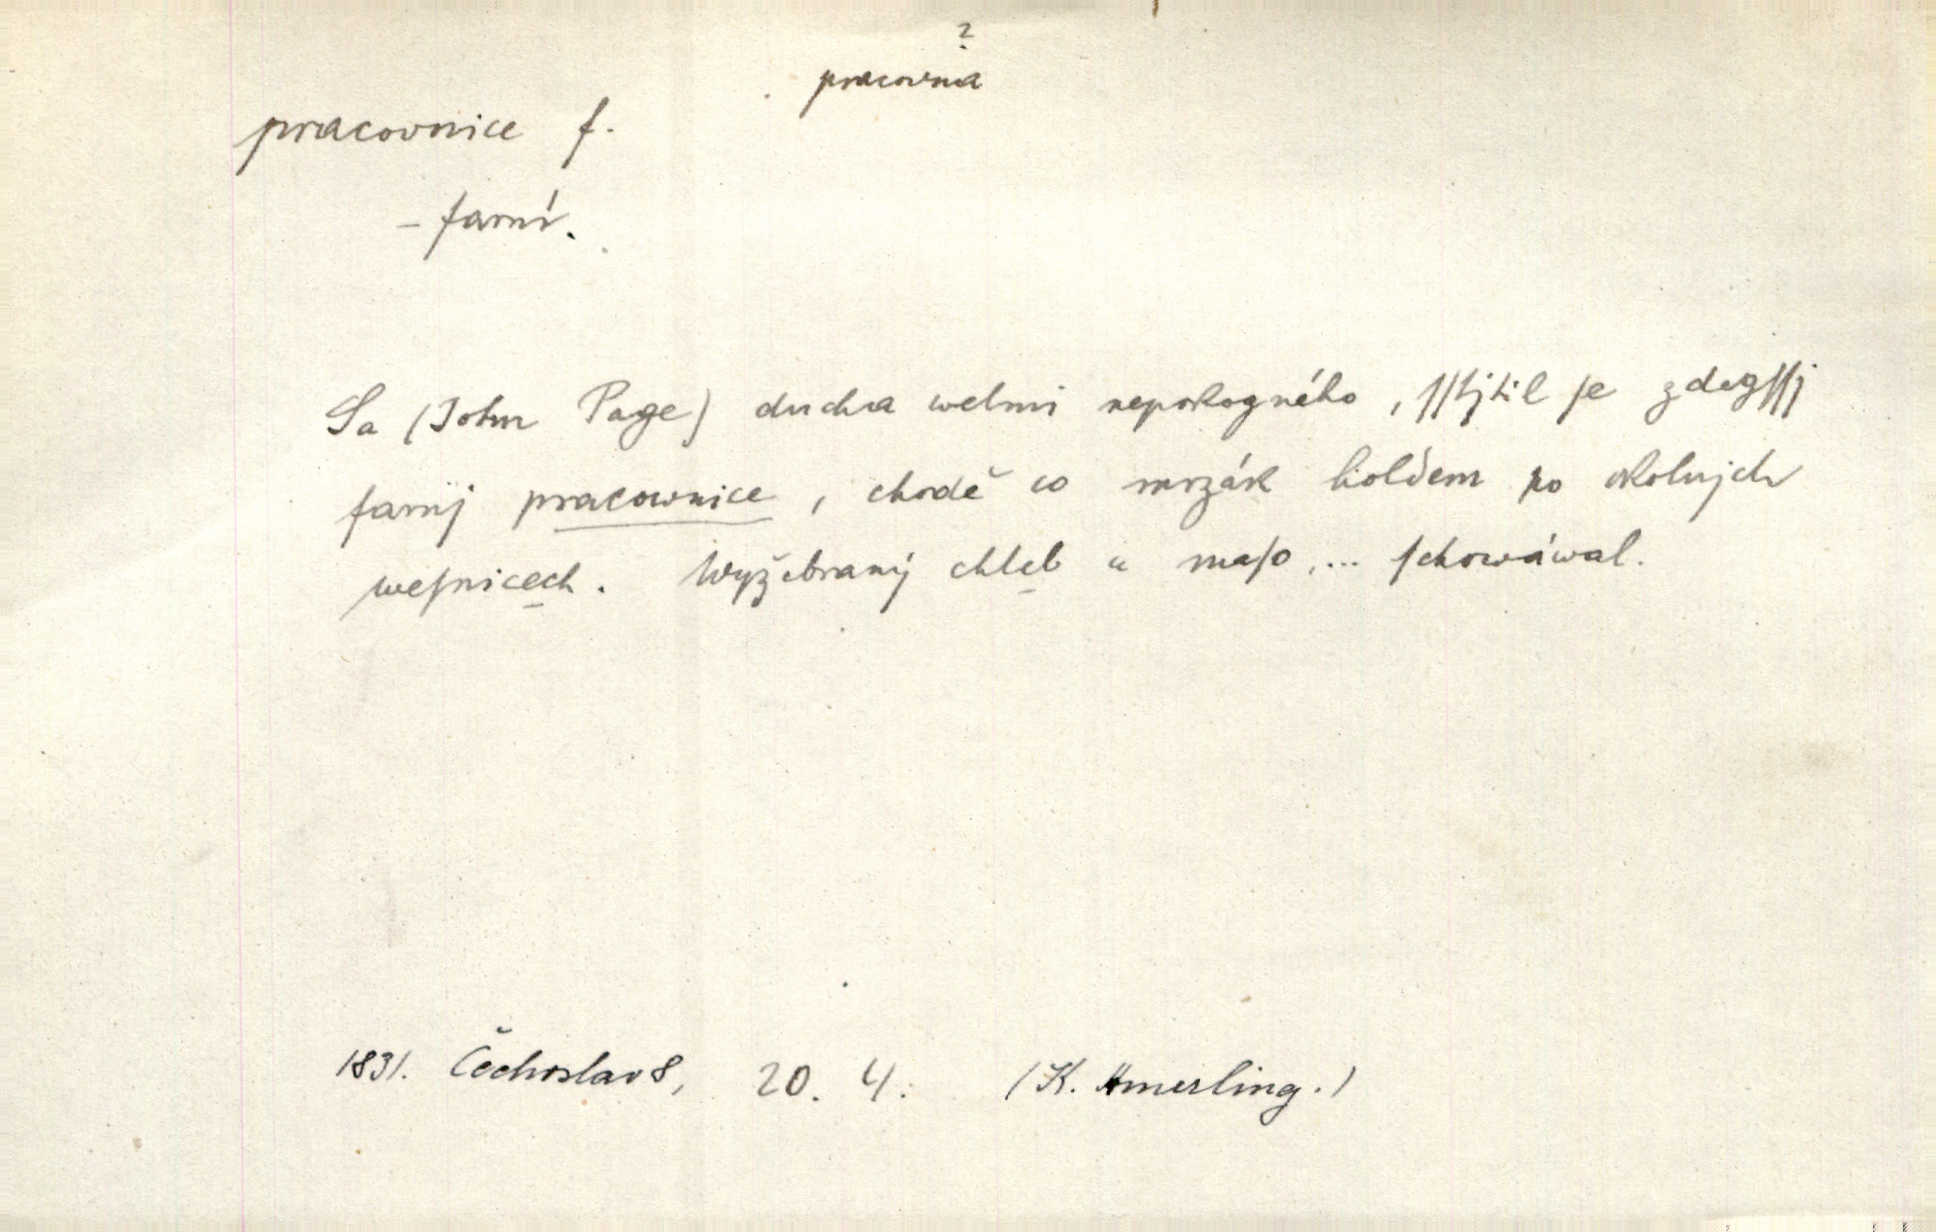 ?
pracovna
pracovnice f.
– farní.
Sa (John Page) ducha welmi nepokogného, ſſtjtil ſe zdegſſj
farnj pracownice, chodě co mrzák holdem po okolnjch
weſnicech. Wyžebraný chleb a maſo, ... ſchowáwal.
1831. Čechoslav 8, 20. 4. (K. Amerling.)